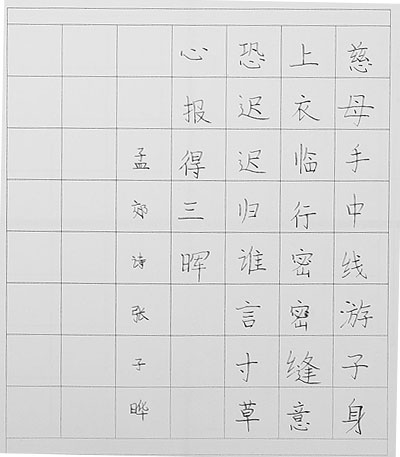 慈母手中线游子身
上衣临行密密缝意
恐迟迟归谁言寸草
心报得三晖
孟郊诗张子晔